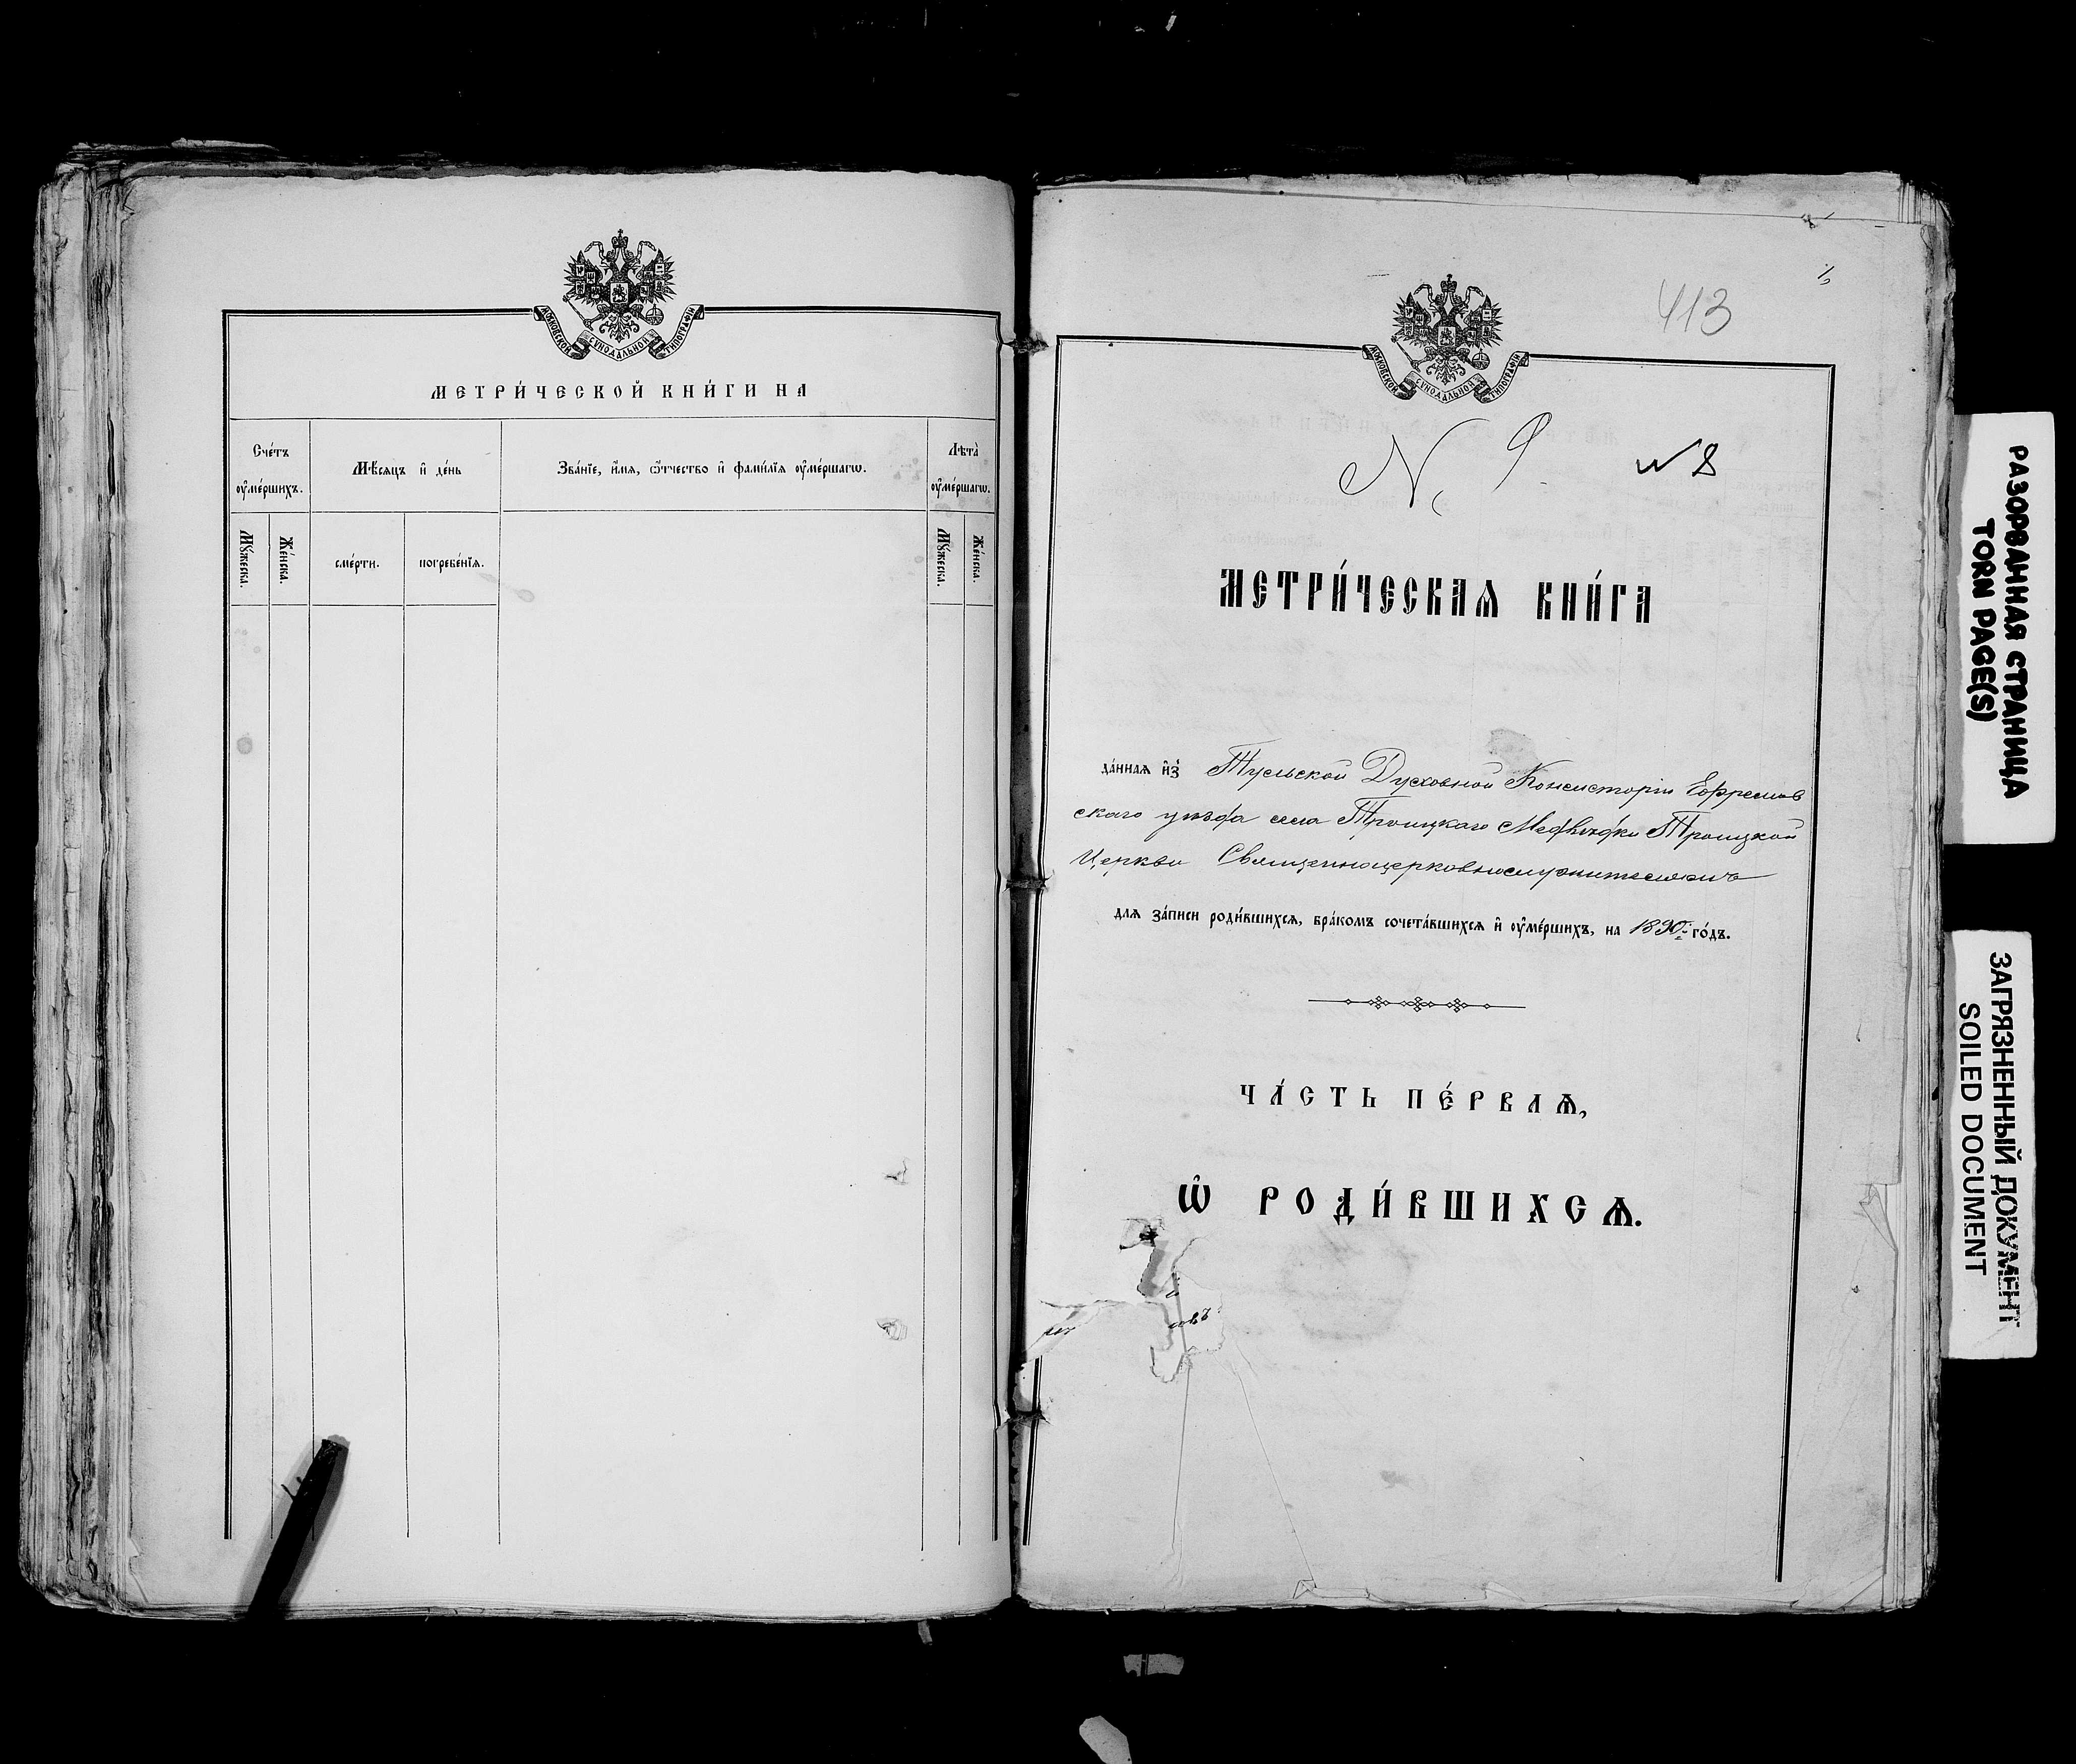 МОСКОВСКОЙ СѴНОДАЛЬНОЙ ТИПОГРАФІИ
МЕТРИ́ЧЕСКОЙ КНИ́ГИ НА
Сче́тъ ᲂу҆ме́ршихъ.
Мѣ́сяцъ и҆ де́нь
Зва́нїе, и҆́мѧ, ѻ҆́тчество и҆ фами́лїѧ ᲂу҆ме́ршагѡ.
Лѣта̀ ᲂу҆ме́ршагѡ.
Мꙋ́жеска.
Же́нска.
сме́рти.
погребе́нїѧ.
Мꙋ́жеска.
Же́нска.
413
МОСКОВСКОЙ СѴНОДАЛЬНОЙ ТИПОГРАФІИ
N. 9.
№ 8
МЕТРИ́ЧЕСКАѦ КНИ́ГА
да́ннаѧ и҆з̾ Тульской Духовной Консисторіи Ефремов
скаго уѣзда села Троицкаго Медвѣдки Троицкой
Церкви Священноцерковнослужителямъ
длѧ за́писи роди́вшихсѧ, бра́комъ сочета́вшихсѧ и҆ ᲂу҆ме́ршихъ, на 1890й го́дъ.
ЧА́СТЬ ПЕ́РВАѦ,
Ѡ҆ РОДИ́ВШИХСѦ.
овъ
РАЗОРВАННАЯ СТРАНИЦА
TORN PAGE(S)
ЗАГРЯЗНЕННЫЙ ДОКУМЕНТ
SOILED DOCUMENT